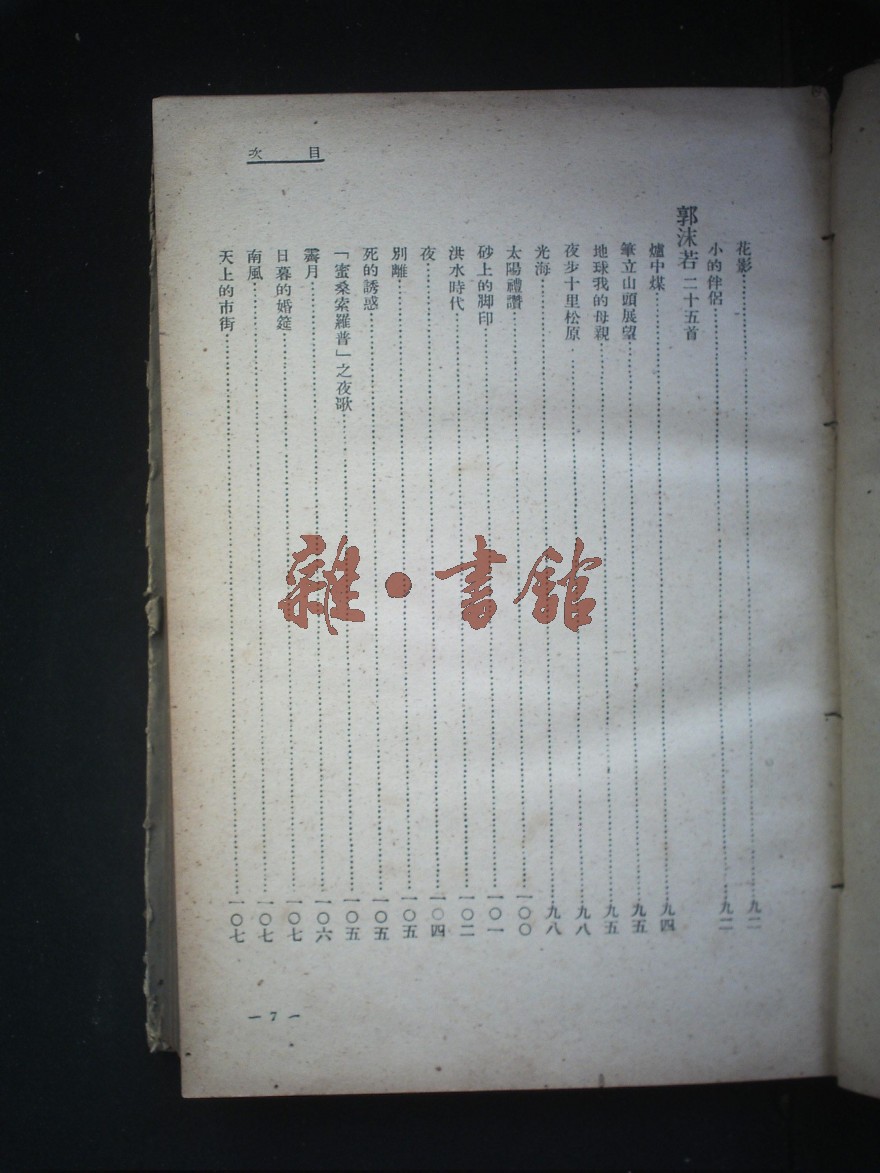 目次
花影……九二
小的伴侶……九二
郭沫若 二十五首
爐中煤……九四
筆立山頭展望……九五
地球我的母親……九五
夜步十里松原……九八
光海……九八
太陽禮讚……一〇〇
砂上的脚印……一〇一
洪水時代……一〇二
夜……一〇四
別離……一〇五
死的誘惑……一〇五
「蜜桑索羅普」之夜歌……一〇五
霽月……一〇六
日暮的婚筵……一〇七
南風……一〇七
天上的市街……一〇七
— 7 —
雜·書館